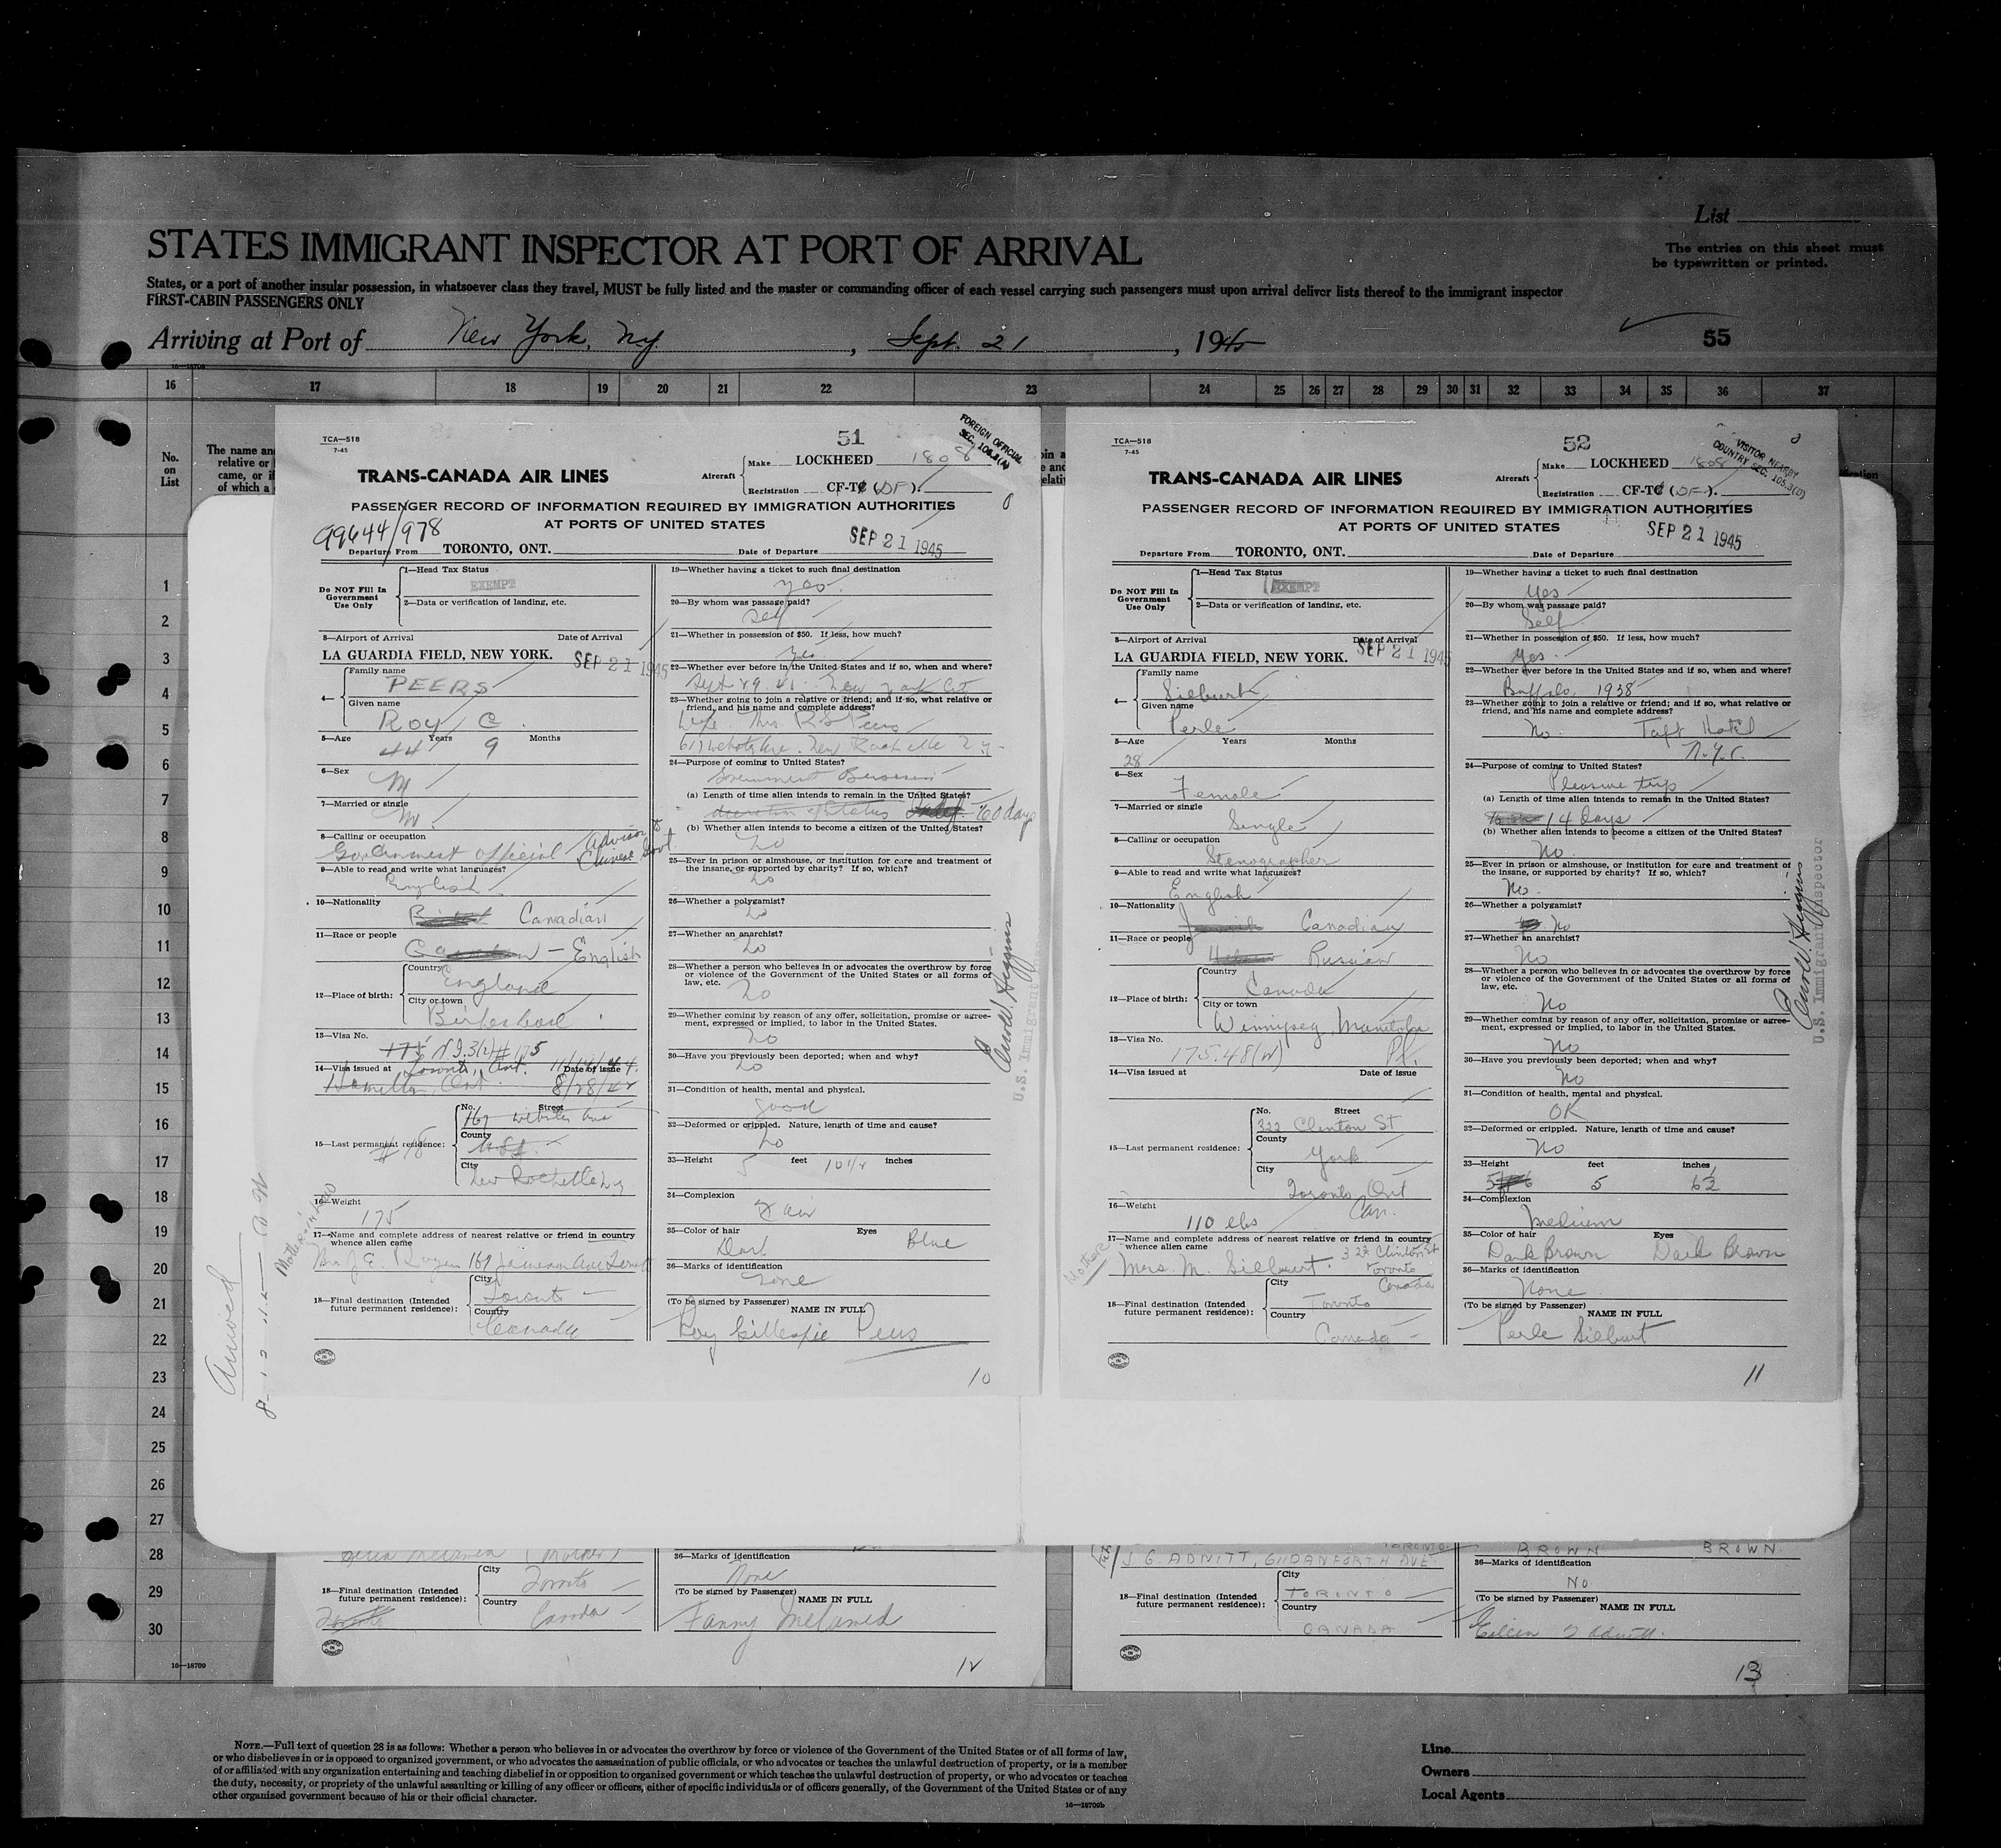 List
STATES IMMIGRANT INSPECTOR AT PORT OF ARRIVAL
The entries on this sheet must
be typewritten or printed.
States, or a port of another insular possession, in whatsoever class they travel, MUST be fully listed and the master or commanding officer of each vessel carrying such passengers must upon arrival deliver lists thereof to the immigrant inspector
FIRST-CABIN PASSENGERS ONLY
Arriving at Port of New York, NY, Sept. 21, 1945
55
16—18709
16 17 18 19 20 21 22 23 24 25 26 27 28 29 30 31 32 33 34 35 36 37
No.
on
List
The name and
relative or
came, or if
of which a
1
2
3
4
5
6
7
8
9
10
11
12
13
14
15
16
17
18
19
20
21
22
23
24
25
26
27
28
29
30
16—18709
TCA—518
7-45
51
FOREIGN OFFICIAL
TRANS-CANADA AIR LINES
Aircraft
Make LOCKHEED 1808
Registration CF-TC (DF).
PASSENGER RECORD OF INFORMATION REQUIRED BY IMMIGRATION AUTHORITIES
AT PORTS OF UNITED STATES
99644/978
Departure From TORONTO, ONT.
Date of Departure SEP 21 1945
Do NOT Fill In
Government
Use Only
1—Head Tax Status
EXEMPT
2—Data or verification of landing, etc.
3—Airport of Arrival Date of Arrival
LA GUARDIA FIELD, NEW YORK. SEP 21 1945
4—
Family name
PEERS
Given name
ROY G.
5—Age Years Months
44 9
6—Sex
M
7—Married or single
M.
8—Calling or occupation
Government Official Advisor to
Chinese Govt.
9—Able to read and write what languages?
English
10—Nationality
Canadian
11—Race or people
— English
12—Place of birth:
Country
England
City or town
Birkenhead
13—Visa No.
175
14—Visa issued at Toronto, Ont. Date of issue
Ont. 8/28/42
15—Last permanent residence:
No. Street
County
City
New Rochelle NY
16—Weight
175
17—Name and complete address of nearest relative or friend in country
whence alien came
18—Final destination (Intended
future permanent residence):
City
Toronto
Country
Canada
19—Whether having a ticket to such final destination
yes
20—By whom was passage paid?
Self
21—Whether in possession of $50. If less, how much?
yes
22—Whether ever before in the United States and if so, when and where?
New York City
23—Whether going to join a relative or friend; and if so, what relative or
friend, and his name and complete address?
Wife. Mrs R G Peers
New Rochelle N.Y.
24—Purpose of coming to United States?
Government Business
(a) Length of time alien intends to remain in the United States?
60 days
(b) Whether alien intends to become a citizen of the United States?
No
25—Ever in prison or almshouse, or institution for care and treatment of
the insane, or supported by charity? If so, which?
No
26—Whether a polygamist?
No
27—Whether an anarchist?
No
28—Whether a person who believes in or advocates the overthrow by force
or violence of the Government of the United States or all forms of
law, etc.
No
29—Whether coming by reason of any offer, solicitation, promise or agree-
ment, expressed or implied, to labor in the United States.
No
30—Have you previously been deported; when and why?
No
31—Condition of health, mental and physical.
good
32—Deformed or crippled. Nature, length of time and cause?
No
33—Height 5 feet 10½ inches
34—Complexion
Fair
35—Color of hair Eyes
Dark Blue
36—Marks of identification
None
(To be signed by Passenger)
NAME IN FULL
Roy Gillespie Peers
U.S. Immigrant Inspector
PRINTED IN CANADA
10
TCA—518
7-45
52
VISITOR NEARBY
COUNTRY SEC. 105.3(D)
TRANS-CANADA AIR LINES
Aircraft
Make LOCKHEED 1808
Registration CF-TC (DF).
PASSENGER RECORD OF INFORMATION REQUIRED BY IMMIGRATION AUTHORITIES
AT PORTS OF UNITED STATES
Departure From TORONTO, ONT.
Date of Departure SEP 21 1945
Do NOT Fill In
Government
Use Only
1—Head Tax Status
EXEMPT
2—Data or verification of landing, etc.
3—Airport of Arrival Date of Arrival
LA GUARDIA FIELD, NEW YORK. SEP 21 1945
4—
Family name
Silburt
Given name
Perle
5—Age Years Months
28
6—Sex
Female
7—Married or single
Single
8—Calling or occupation
Stenographer
9—Able to read and write what languages?
English
10—Nationality
Canadian
11—Race or people
Russian
12—Place of birth:
Country
Canada
City or town
Winnipeg, Manitoba
13—Visa No.
175.48(N) Pl.
14—Visa issued at Date of issue
15—Last permanent residence:
No. Street
322 Clinton St
County
York
City
Toronto Ont
Can.
16—Weight
110 lbs
17—Name and complete address of nearest relative or friend in country
whence alien came
Mother
Mrs. M. Silburt. 322 Clinton St
Toronto
Canada
18—Final destination (Intended
future permanent residence):
City
Toronto
Country
Canada
19—Whether having a ticket to such final destination
Yes
20—By whom was passage paid?
Self
21—Whether in possession of $50. If less, how much?
Yes
22—Whether ever before in the United States and if so, when and where?
Buffalo, 1938
23—Whether going to join a relative or friend; and if so, what relative or
friend, and his name and complete address?
No. Taft Hotel
N.Y.C.
24—Purpose of coming to United States?
Pleasure trip
(a) Length of time alien intends to remain in the United States?
14 Days
(b) Whether alien intends to become a citizen of the United States?
No
25—Ever in prison or almshouse, or institution for care and treatment of
the insane, or supported by charity? If so, which?
No
26—Whether a polygamist?
No
27—Whether an anarchist?
No
28—Whether a person who believes in or advocates the overthrow by force
or violence of the Government of the United States or all forms of
law, etc.
No
29—Whether coming by reason of any offer, solicitation, promise or agree-
ment, expressed or implied, to labor in the United States.
No
30—Have you previously been deported; when and why?
No
31—Condition of health, mental and physical.
OK
32—Deformed or crippled. Nature, length of time and cause?
No
33—Height feet inches
5 6½
34—Complexion
Medium
35—Color of hair Eyes
Dark Brown Dark Brown
36—Marks of identification
None
(To be signed by Passenger)
NAME IN FULL
Perle Silburt
U.S. Immigrant Inspector
PRINTED IN CANADA
11
(Mother)
18—Final destination (Intended
future permanent residence):
City
Toronto
Country
Canada
36—Marks of identification
None
(To be signed by Passenger)
NAME IN FULL
Fanny Melamed
12
J. G. ADNITT, 611 DANFORTH AVE. TORONTO.
18—Final destination (Intended
future permanent residence):
City
TORONTO
Country
CANADA
BROWN BROWN.
36—Marks of identification
No
(To be signed by Passenger)
NAME IN FULL
Eileen J Adnitt.
13
NOTE.—Full text of question 28 is as follows: Whether a person who believes in or advocates the overthrow by force or violence of the Government of the United States or of all forms of law,
or who disbelieves in or is opposed to organized government, or who advocates the assassination of public officials, or who advocates or teaches the unlawful destruction of property, or is a member
of or affiliated with any organization entertaining and teaching disbelief in or opposition to organized government or which teaches the unlawful destruction of property, or who advocates or teaches
the duty, necessity, or propriety of the unlawful assaulting or killing of any officer or officers, either of specific individuals or of officers generally, of the Government of the United States or of any
other organized government because of his or their official character.
16—18709b
Line
Owners
Local Agents